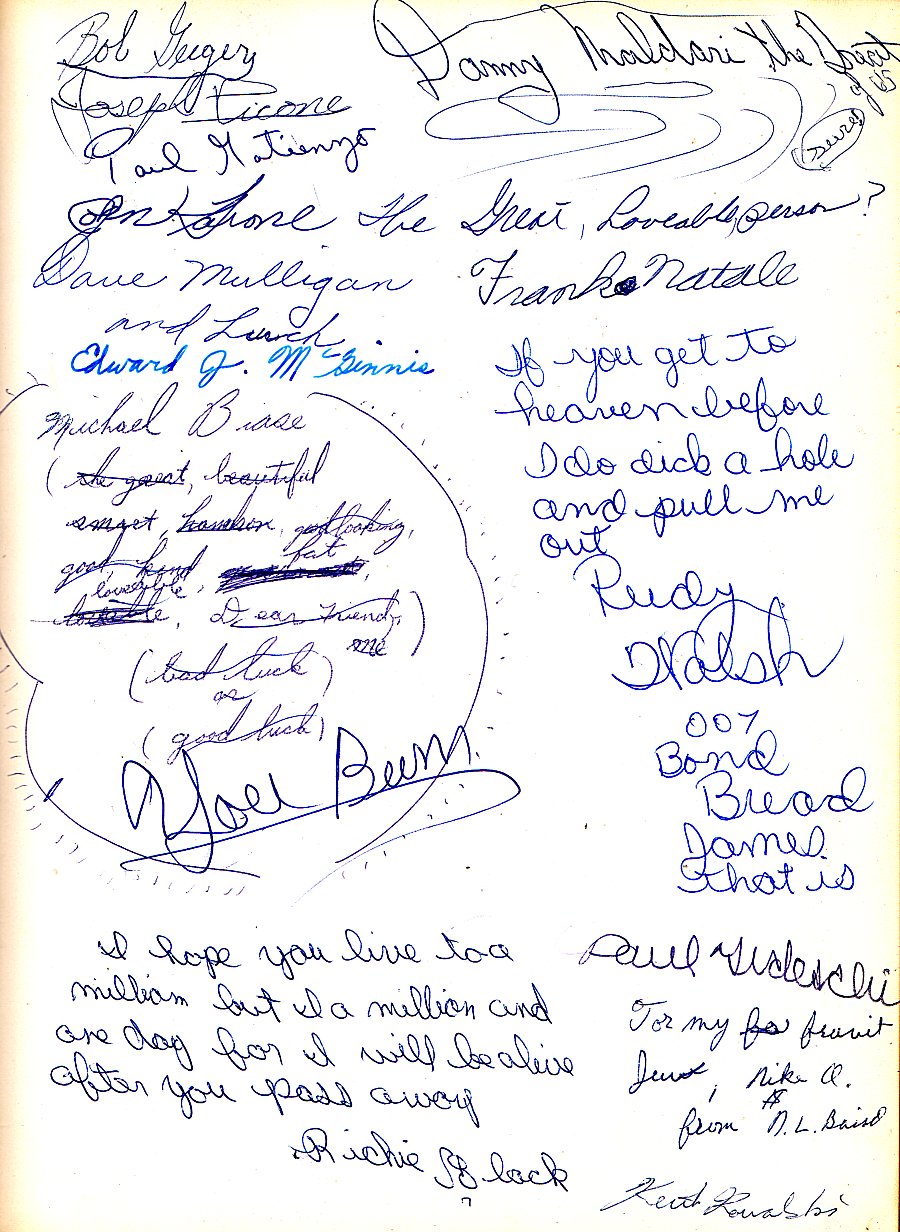 Bob Geiger
Danny Maldari the Great
of 65
Joseph Picone
Paul Matienzo
The Great, Loveable, person?
Dave Mulligan
and Lurch
Frank Natale
Edward J. McGinnis
Michael Biase
(the great, beautiful
smart, handson, goodlooking,
good, kind, fat
loveable,
Dear Friend,)
me
(bad luck)
or
(good luck)
You Bum
If you get to
heaven before
I do dick a hole
and pull me
out
Rudy
Walsh
007
Bond
Bread
James.
that is
I hope you live too a
million but I a million and
one day for I will be alive
after you pass away
Richie Block
?
Paul Tedeschi
To my fravit
Mike O.
from N.L. Baird
Keith Kowalski